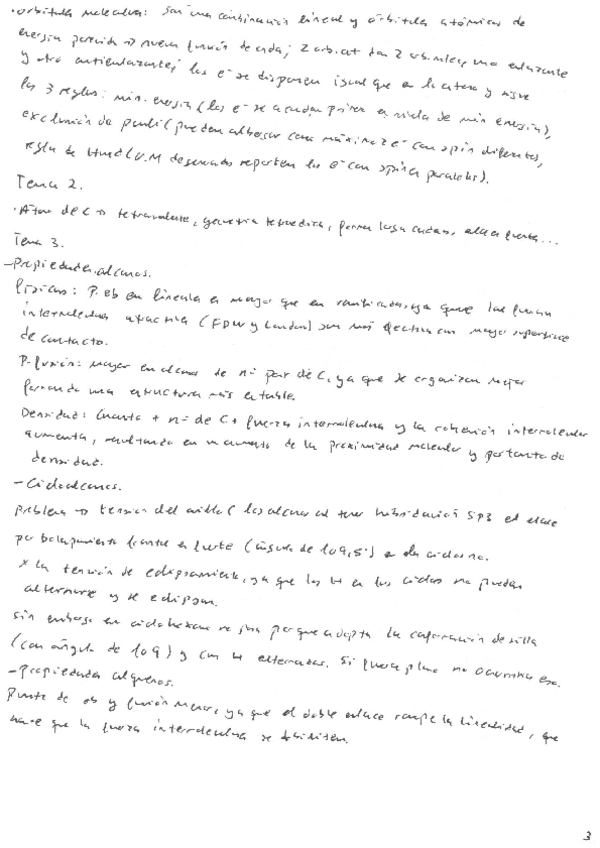 · orbitales moleculares: son una combinación lineal y orbitales atómicos de
energía parecida → nueva función de onda; 2 orb. at dan 2 orb. molec, uno enlazante
y otro antienlazante; los e⁻ se disponen igual que en la corteza y sigue
las 3 reglas: min. energía (los e⁻ se acomodan primero en niveles de min energía),
exclusión de pauli (pueden albergar como máximo 2 e⁻ con spin diferentes),
regla de Hund (O.M degenerados reparten los e⁻ con spines paralelos).
Tema 2.
· Átomo de C → tetravalente, geometría tetraédrica, forma largas cadenas, enlace fuerte...
Tema 3.
- Propiedades alcanos.
Físicas: P. eb en lineales es mayor que en ramificados, ya que las fuerzas
intermoleculares atractivas (FDW y London) son más efectivas con mayor superficie
de contacto.
P. fusión: mayor en alcanos de nº par de C, ya que se organizan mejor
formando una estructura más estable.
Densidad: Cuanto + nº de C + fuerzas intermoleculares y la cohesión intermolecular
aumenta, resultando en un aumento de la proximidad molecular y por tanto de
densidad.
- Cicloalcanos.
Problema → tension del anillo (los alcanos al tener hibridación SP3 el enlace
por solapamiento frontal es fuerte (ángulo de 109,5°) en los ciclos no.
x la tensión de eclipsamiento, ya que los H en los ciclos no pueden
alternarse y se eclipsan.
Sin embargo en ciclohexano no pasa porque adopta la conformación de silla
(con ángulo de 109) y con H alternados. Si fuera plano no ocurriría eso.
- Propiedades alquenos.
Punto de eb y fusión menor, ya que el doble enlace rompe la linealidad, que
hace que las fuerzas intermoleculares se debiliten.
3